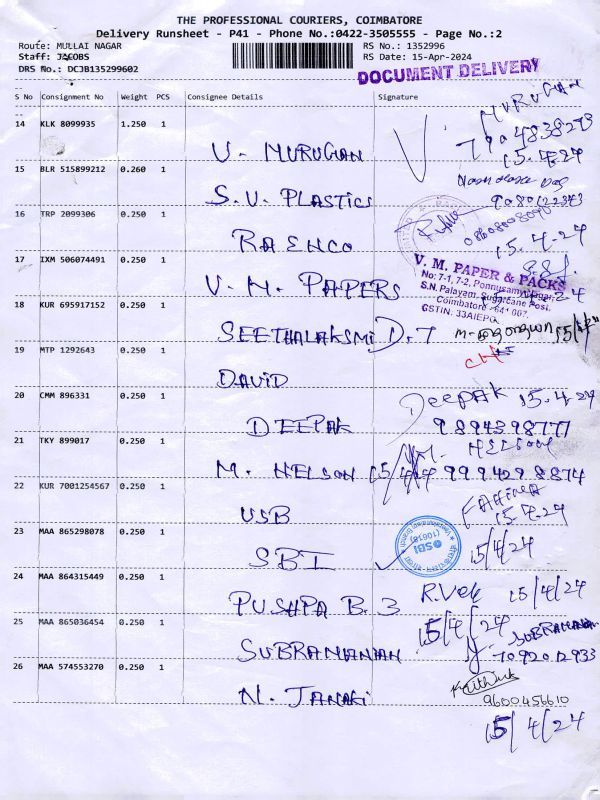 THE PROFESSIONAL COURIERS, COIMBATORE
Delivery Runsheet - P41 - Phone No.:0422-3505555 - Page No.:2
Route: MULLAI NAGAR
RS No.: 1352996
Staff: JACOBS
RS Date: 15-Apr-2024
DRS No.: DCJB135299602
DOCUMENT DELIVERY
S No Consignment No Weight PCS Consignee Details Signature
14 KLK 8099935 1.250 1
MURUGAN
V. MURUGAN
15.4.24
15 BLR 515899212 0.260 1
S.V. PLASTICS
16 TRP 2099306 0.250 1
RAENCO
15.4.24
17 IXM 506074491 0.250 1
V.M. PAPERS
V. M. PAPER & PACKS
No: 7-1, 7-2, Ponnusamy Nagar,
S.N. Palayam, Sugarcane Post,
Coimbatore - 641 007.
GSTIN: 33AIEPG
18 KUR 695917152 0.250 1
SEETHALAKSMI D.T
15/4/24
19 MTP 1292643 0.250 1
DAVID
20 CMM 896331 0.250 1
Deepak 15.4.24
DEEPAK 9894398777
21 TKY 899017 0.250 1
M. NELSON 15/4/24 9994298874
22 KUR 7001254567 0.250 1
USB
15.4.24
23 MAA 865298078 0.250 1
SBI
SBI
15/4/24
24 MAA 864315449 0.250 1
PUSHPA B. 3 R.Vel 15/4/24
25 MAA 865036454 0.250 1
15/4/24 SUBRAMANIAN
SUBRAMANIAN 7092012933
26 MAA 574553270 0.250 1
N. JANAKI
9600456610
15/4/24